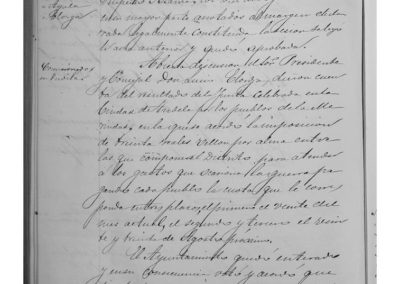 Ayala
Elorga
cuya mayor parte anotados al margen declarada
legalmente constituida la sesion se leyo
la acta anterior y quedo aprobada.
Comisionados
Abierta la sesion el Sor. Presidente
y Concejal Don Luis Elorga, dieron cuenta
del resultado de la Junta celebrada en la
Ciudad de Tudela por los pueblos de la Merindad
en la que se acordó la imposicion
de treinta reales vellon por alma entre
las que componen el distrito para atender
a los gastos que ocasiona la guerra pagando
cada pueblo la cuota que le corresponda
en tres plazos, el primero el veinte del
mes actual, el segundo y tercero el veinte
y treinta de Agosto próximo.
El Ayuntamiento quedó enterado
y en su consecuencia votó y acordó que